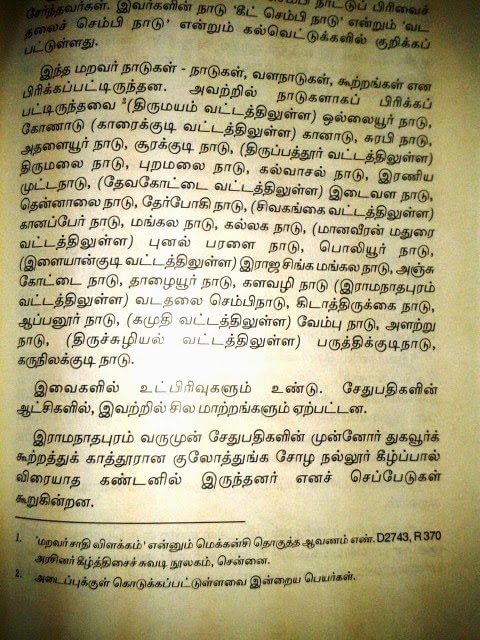 சேர்ந்தவர்கள். இவர்களின் நாடு 'கீட் செம்பி நாடு' என்றும் 'வட
தலைச் செம்பி நாடு' என்றும் கல்வெட்டுக்களில் குறிக்கப்
பட்டுள்ளது.
இந்த மறவர் நாடுகள் - நாடுகள், வளநாடுகள், கூற்றங்கள் என
பிரிக்கப்பட்டிருந்தன. அவற்றில் நாடுகளாகப் பிரிக்கப்
பட்டிருந்தவை ²(திருமயம் வட்டத்திலுள்ள) ஒல்லையூர் நாடு,
கோணாடு (காரைக்குடி வட்டத்திலுள்ள) கானாடு, சுரபி நாடு,
அதளையூர் நாடு, சூரக்குடி நாடு, (திருப்பத்தூர் வட்டத்திலுள்ள)
திருமலை நாடு, புறமலை நாடு, கல்வாசல் நாடு, இரணிய
முட்டநாடு, (தேவகோட்டை வட்டத்திலுள்ள) இடைவள நாடு,
தென்னாலை நாடு, தேர்போகி நாடு, (சிவகங்கை வட்டத்திலுள்ள)
கானப்பேர் நாடு, மங்கல நாடு, கல்லக நாடு, (மானவீரன் மதுரை
வட்டத்திலுள்ள) புனல் பரளை நாடு, பொலியூர் நாடு,
(இளையான்குடி வட்டத்திலுள்ள) இராஜசிங்கமங்கல நாடு, அஞ்சு
கோட்டை நாடு, தாழையூர் நாடு, களவழி நாடு (இராமநாதபுரம்
வட்டத்திலுள்ள) வடதலை செம்பிநாடு, கிடாத்திருக்கை நாடு,
ஆப்பனூர் நாடு, (கமுதி வட்டத்திலுள்ள) வேம்பு நாடு, அளற்று
நாடு, (திருச்சுழியல் வட்டத்திலுள்ள) பருத்திக்குடிநாடு,
கருநிலக்குடி நாடு.
இவைகளில் உட்பிரிவுகளும் உண்டு. சேதுபதிகளின்
ஆட்சிகளில், இவற்றில் சில மாற்றங்களும் ஏற்பட்டன.
இராமநாதபுரம் வருமுன் சேதுபதிகளின் முன்னோர் துகவூர்க்
கூற்றத்துக் காத்தூரான குலோத்துங்க சோழ நல்லூர் கீழ்ப்பால்
விரையாத கண்டனில் இருந்தனர் எனச் செப்பேடுகள்
கூறுகின்றன.
1. 'மறவர் சாதி விளக்கம்' என்னும் மெக்கன்சி தொகுத்த ஆவணம் எண். D2743, R 370
அரசினர் கீழ்த்திசைச் சுவடி நூலகம், சென்னை.
2. அடைப்புக்குள் கொடுக்கப்பட்டுள்ளவை இன்றைய பெயர்கள்.